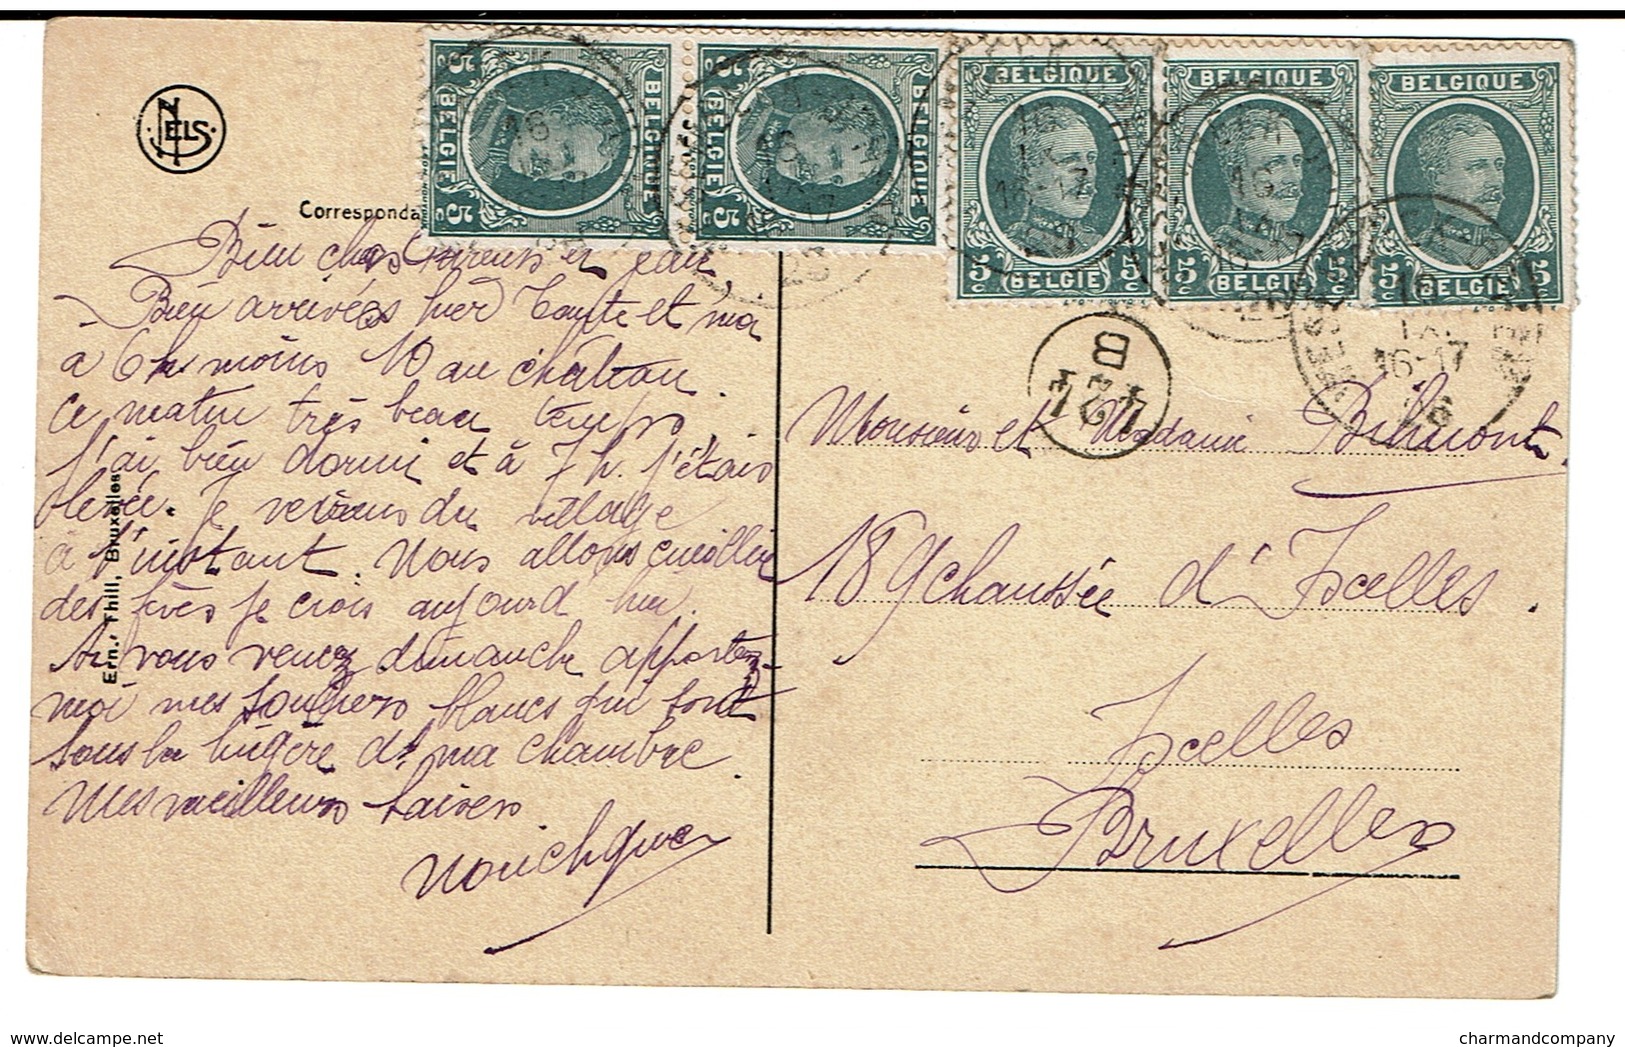 NELS
BELGIQUE
BELGIE
5c 5c
BELGIQUE
BELGIE
5c 5c
BELGIQUE
5c BELGIE 5c
BELGIQUE
5c BELGIE 5c
BELGIQUE
5c BELGIE 5c
16
IX
16-17
26
Corresponda
Ern. Thill, Bruxelles
Bien chers et Jean
Bien arrivées hier Tante et moi
à 6 h moins 10 au château.
Ce matin très beau temps.
J'ai bien dormi et à 7 h. j'étais
levée. Je reviens du village
à l'instant. Nous allons cueillir
des je crois aujourd'hui.
Si vous venez dimanche apportez
moi mes souliers blancs qui sont
sous la lingère de ma chambre
Mes meilleurs baisers
B
Monsieur et Madame Bihmont.
189 chaussée d'Ixelles.
Ixelles
Bruxelles
https://www.delcampe.net
charmandcompany